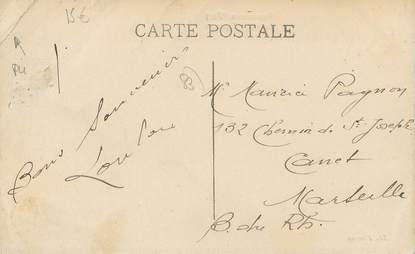 15€
CARTE POSTALE
Bons Souvenirs
Mr Maurice Pagnon
132 Chemin de St Joseph
Canet
Marseille
B. du Rh.